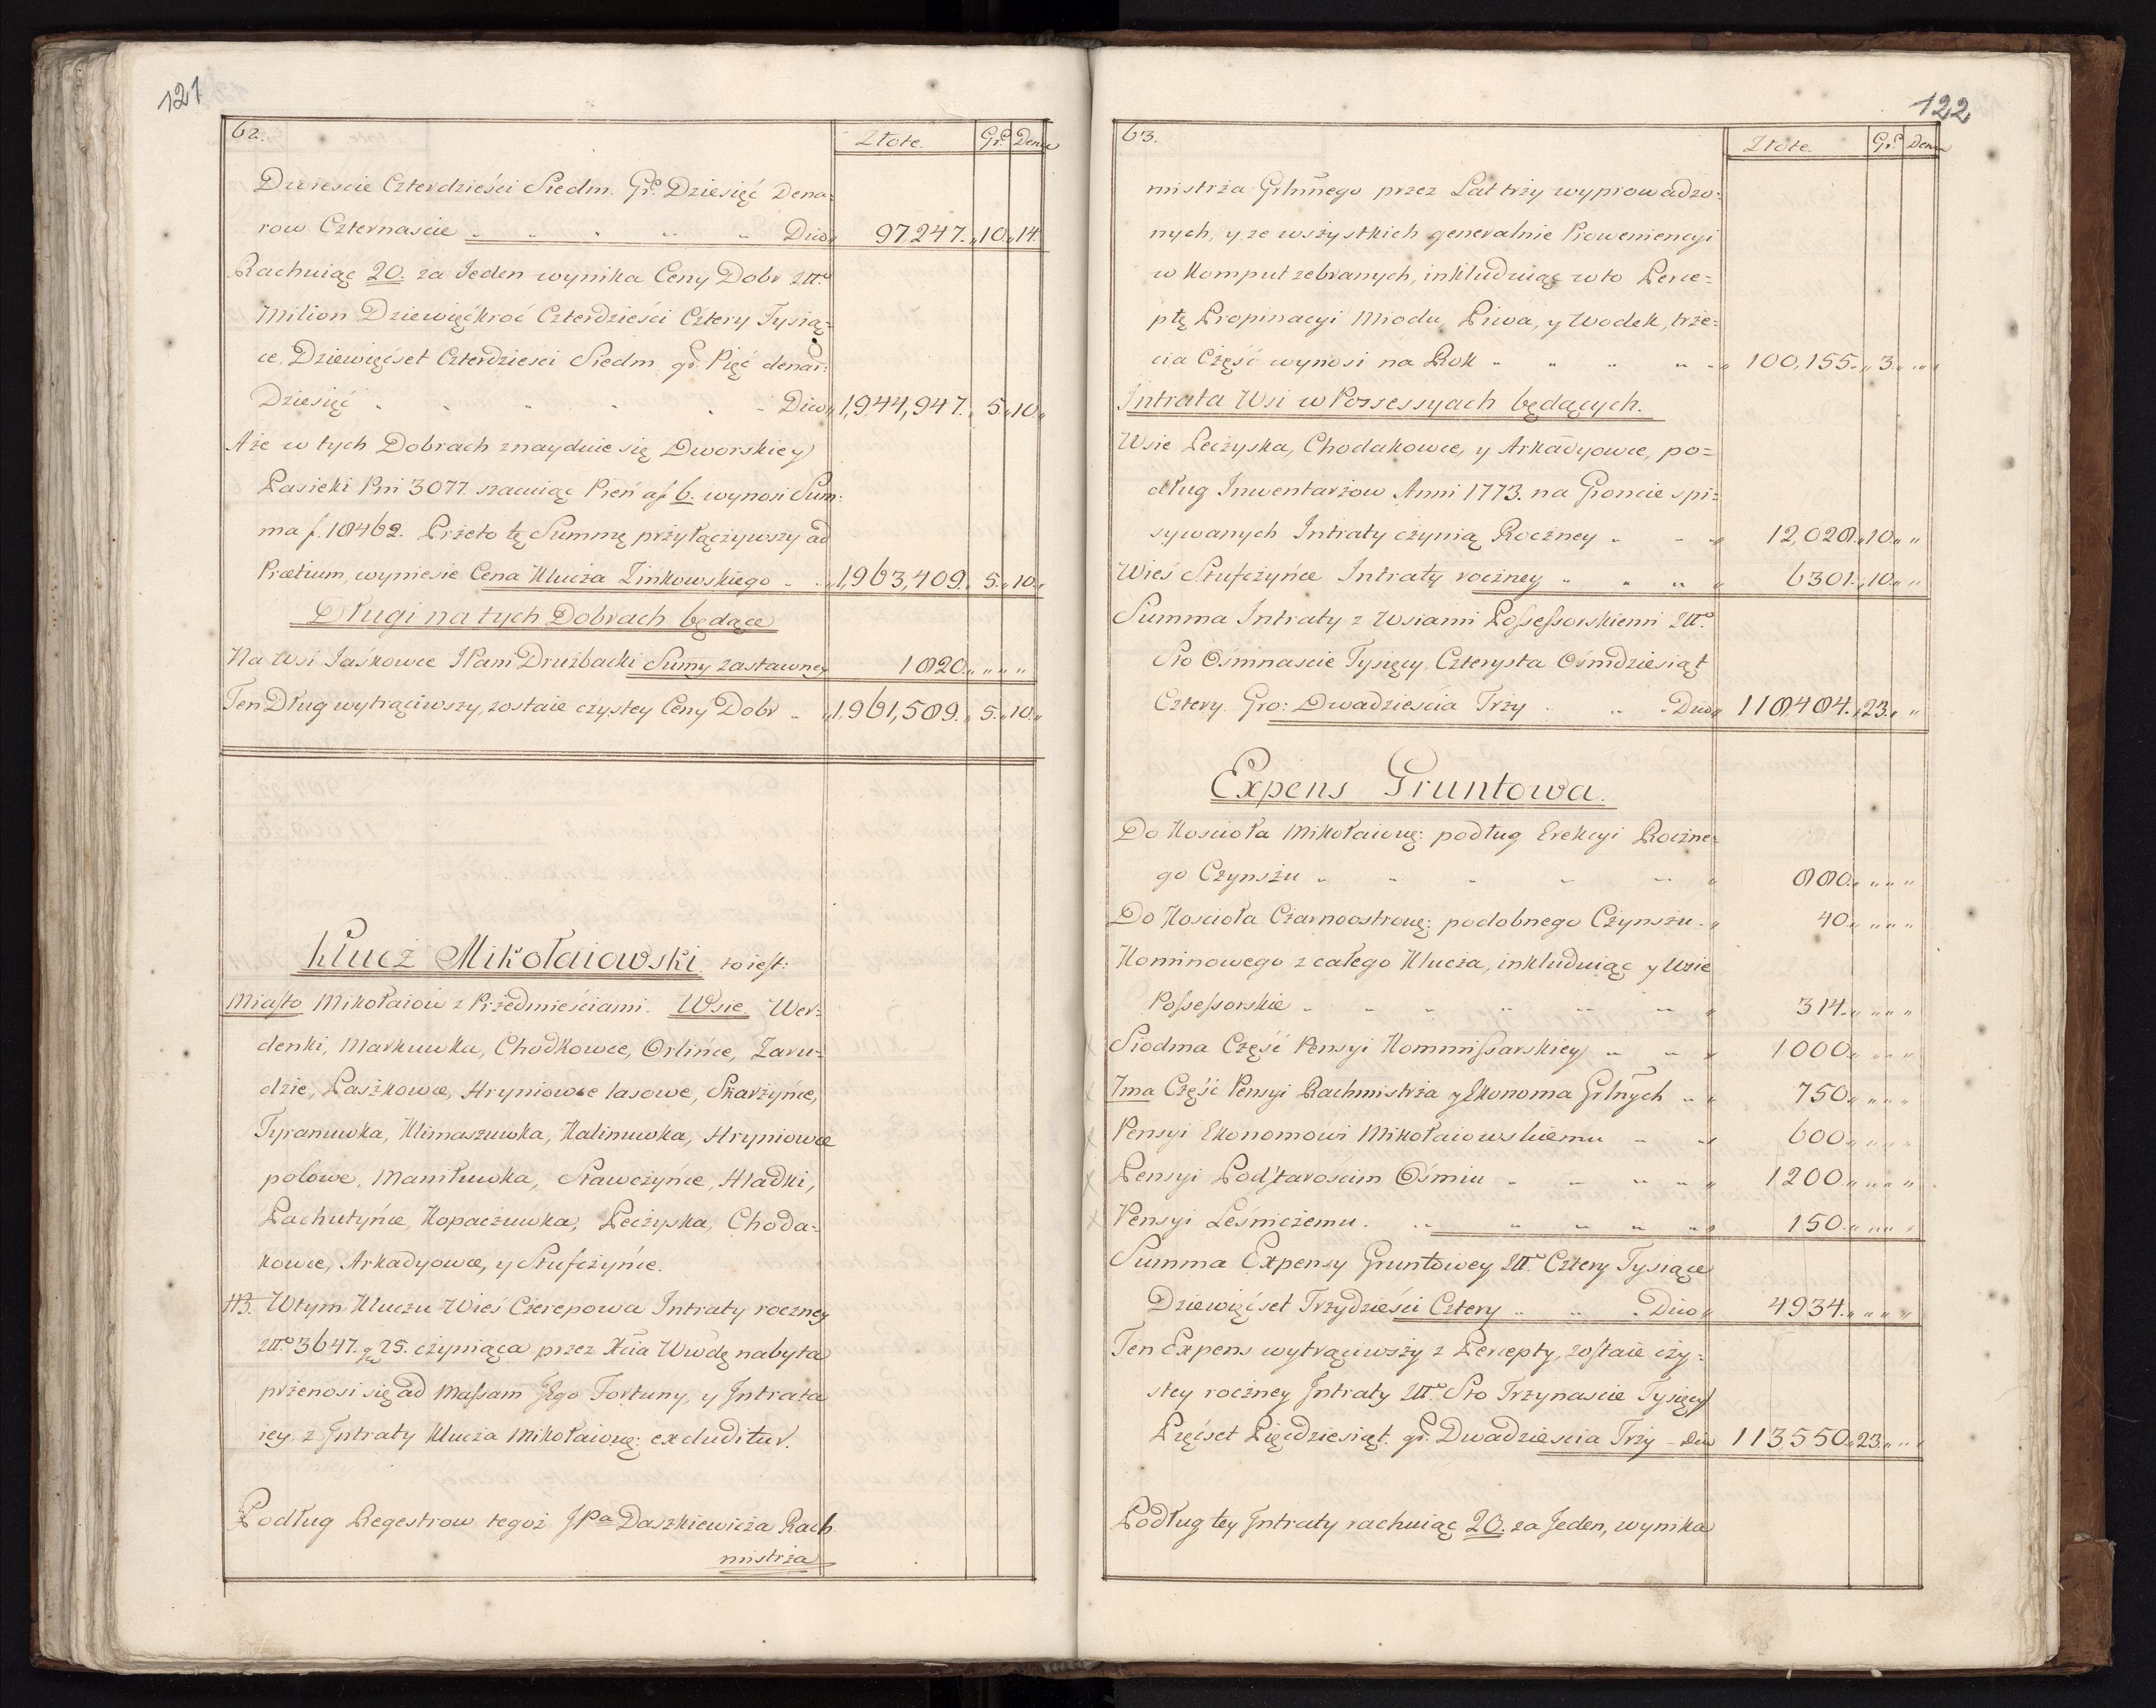 121
62. Złote. Gr. Den.
Dwieście Czterdzieści Siedm. Gr. Dziesięć Dena=
row Czternaście Dico 97,247. 10. 14.
Rachuiąc 20. za Jeden wynika Ceny Dobr Złł.
Milion Dziewięćkroć Czterdzieści Cztery Tysią=
ce Dziewięćset Czterdzieści Siedm gr. Pięć denar:
Dziesięć Dico 1,944,947. 5. 10.
A że w tych Dobrach znayduie się Dworskiey
Pasieki Pni 3077. szacuiąc Pień a f. 6. wynosi Sum:
ma f. 18462. Przeto tę Summę przyłączywszy ad
Prætium, wyniesie Cena Klucza Zinkowskiego 1,963,409. 5. 10.
Długi na tych Dobrach będące
Na Wsi Jaśkowce JPani Drużbacki Sumy zastawney 1820.
Ten Dług wytrąciwszy, zostaie czystey Ceny Dobr 1,961,589. 5. 10.
Klucz Mikołaiowski to iest:
Miasto Mikołaiow z Przedmieściami. Wsie. Wer=
denki, Markuwka, Chodkowce, Orlińce, Zaru=
dzie, Paszkowce, Hryniowce lasowe, Skarżyńce,
Tyranuwka, Klimaszuwka, Kalinuwka, Hryniowce
polowe, Maniłuwka, Sławczyńce, Hladki,
Pachutyńce, Kopaczuwka, Peczyska, Choda=
kowce, Arkadyowce, y Stufczyńce.
NB. W tym Kluczu Wieś Czerepowa Intraty roczney
Złł. 3647. gr 25. czyniąca przez Xcia Wwdę nabyta
przenosi się ad Massam Jego Fortuny, y Intrata
iey z Intraty Klucza Mikołaiowg: excluditur.
Podług Regestrow tegoż JPa Daszkiewicza Rach
mistrza
122
63. Złote. Gr. Den.
mistrza Grlnnego przez Lat trzy wyprowadzo=
nych, y ze wszystkich generalnie Proweniencyi
w Komput zebranych, inkluduiąc w to Perce=
ptę Propinacyi Miodu, Piwa, y Wodek, trze=
cia Część wynosi na Rok 100,155. 3.
Intrata Wsi w Possessyach będących.
Wsie Peczyska, Chodakowce, y Arkadyowce, po=
dług Inwentarzow Anni 1773. na Groncie spi=
sywanych Intraty czynią Roczney 12,028. 10.
Wieś Stufczyńce Intraty roczney 6301. 10.
Summa Intraty z Wsiami Possessorskiemi Złł.
Sto Ośmnaście Tysięcy, Czterysta Ośmdziesiąt
Cztery. Gro: Dwadzieścia Trzy Dico 118,484. 23.
Expens Gruntowa.
Do Kościoła Mikołaiowg: podług Erekcyi Roczne=
go Czynszu 880.
Do Kościoła Czarnoostrowg: podobnego Czynszu 40.
Kominowego z całego Klucza, inkluduiąc y Wsie
Possessorskie 314.
Siodma Część Pensyi Kommissarskiey 1000.
7ma Część Pensyi Rachmistrza y Ekonoma Grlnych 750.
Pensyi Ekonomowi Mikołaiowskiemu 600.
Pensyi Podstarościm Ośmiu 1200.
Pensyi Leśniczemu. 150.
Summa Expensy Gruntowey Złł. Cztery Tysiące
Dziewięćset Trzydzieści Cztery Dico 4934.
Ten Expens wytrąciwszy z Percepty, zostaie czy=
stey roczney Intraty Złł. Sto Trzynaście Tysięcy
Pięćset Pięćdziesiąt. gr. Dwadzieścia Trzy Dico 113,550. 23.
Podług tey Intraty rachuiąc 20. za Jeden, wynika